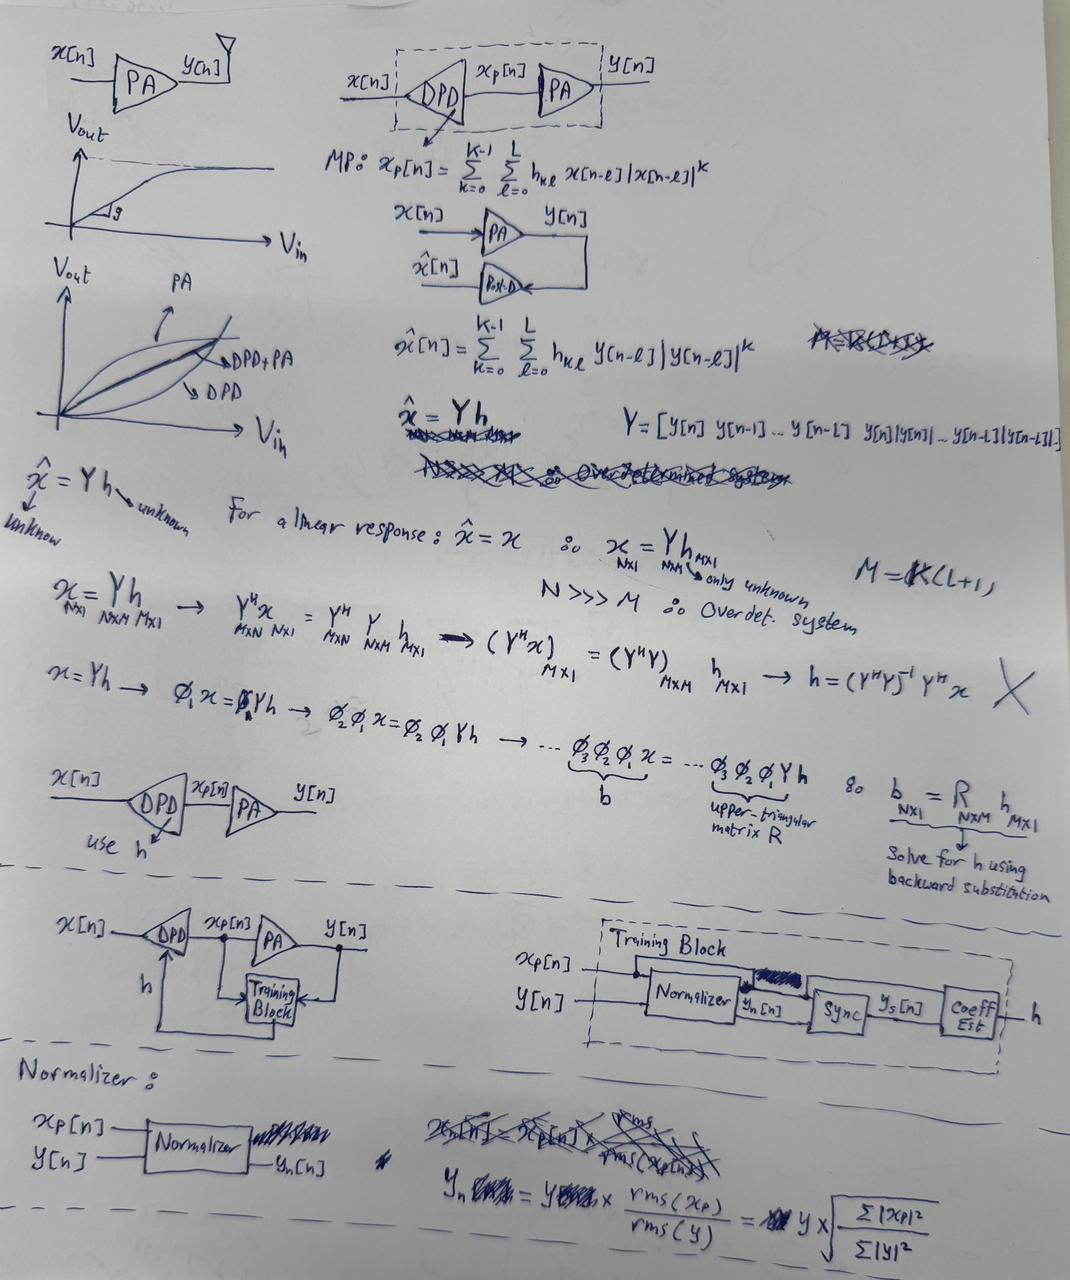 x[n] PA y[n]
x[n] DPD xp[n] PA y[n]
Vout
g
Vin
MP: xp[n] = Σ_{k=0}^{K-1} Σ_{l=0}^{L} h_{kl} x[n-l] |x[n-l]|^k
x[n] PA y[n]
x̂[n] Post-D
Vout
PA
DPD+PA
DPD
Vin
x̂[n] = Σ_{k=0}^{K-1} Σ_{l=0}^{L} h_{kl} y[n-l] |y[n-l]|^k
x̂ = Yh
Y = [y[n] y[n-1] ... y[n-L] y[n]|y[n]| ... y[n-L]|y[n-L]|]
x̂ = Yh
unknow
unknown
For a linear response: x̂ = x ∴ x_{N×1} = Y_{N×M} h_{M×1}
only unknown
M = K(L+1)
N >>> M ∴ Overdet. system
x_{N×1} = Y_{N×M} h_{M×1} → Y^H_{M×N} x_{N×1} = Y^H_{M×N} Y_{N×M} h_{M×1} → (Y^H x)_{M×1} = (Y^H Y)_{M×M} h_{M×1} → h = (Y^H Y)^{-1} Y^H x X
x = Yh → ϕ₁x = ϕ₁Yh → ϕ₂ϕ₁x = ϕ₂ϕ₁Yh → ... ϕ₃ϕ₂ϕ₁x = ... ϕ₃ϕ₂ϕ₁Yh ∴ b_{N×1} = R_{N×M} h_{M×1}
b
upper-triangular
matrix R
Solve for h using
backward substitution
x[n] DPD xp[n] PA y[n]
use h
x[n] DPD xp[n] PA y[n]
h
Training
Block
Training Block
xp[n]
y[n]
Normalizer
yn[n]
Sync
ys[n]
Coeff
Est
h
Normalizer:
xp[n]
y[n]
Normalizer
yn[n]
yn = y × rms(xp) / rms(y) = y × √(Σ|xp|² / Σ|y|²)